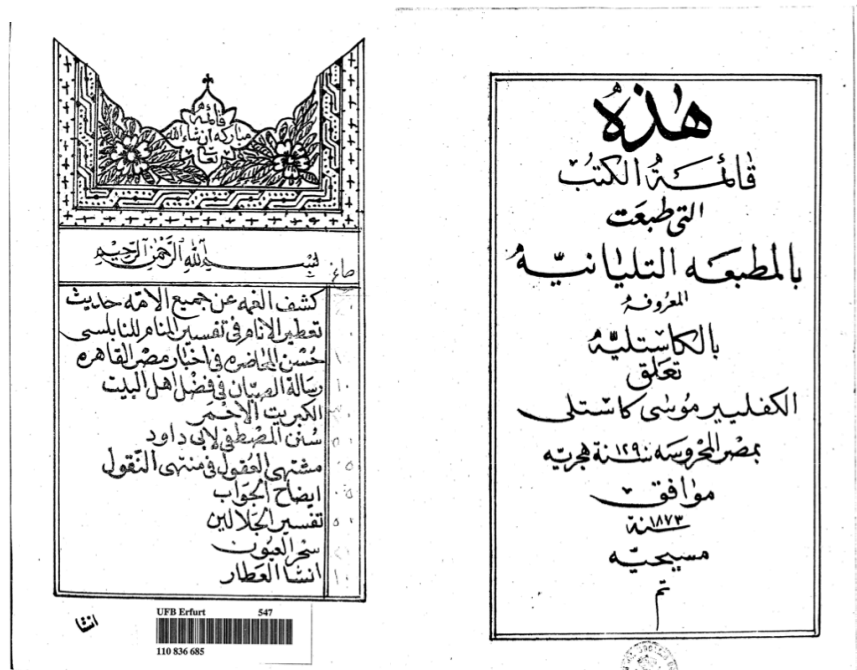 هٰذهِ
قائمة الكتب
التى طبعَت
بالمطبعه التليانيّه
المعروفه
بالكاستليّه
تعلق
الكفليير موسى كاستلى
بمصر المحروسه سنة ١٢٩٠ هجريّه
موافق
سنة ١٨٧٣
مسيحيّه
تم
قائمة
مباركه انشاءالله
تعا
بسم الله الرحمن الرحيم
صاغ
كشف الغمه عن جميع الامّه حديث
تعطير الانام فى تفسير المنام للنابلسى
حُسْن المحاضره فى اخبار مصر القاهره
رسالة الصبّان فى فضل اهل البيت
الكبريت الاحمر
سُنن المصطفى لابى داود
مشتهى العقول فى منتهى النّقول
ايضاح الجَوَاب
تفسير الجَلالين
سحر العيون
انشا العَطار
انشا
UFB Erfurt 547
110 836 685